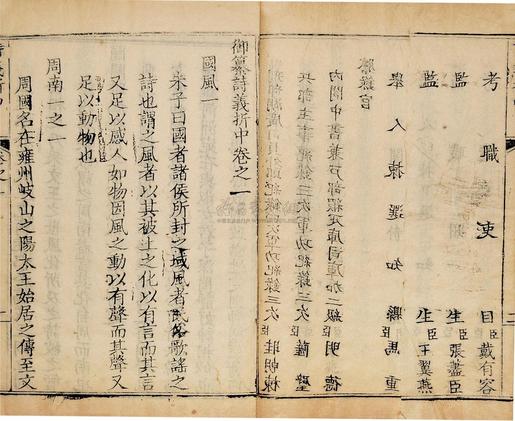 考職吏目臣戴有容
監生臣張藎臣
監生臣王翼燕
舉人棟選知縣臣馬重
謄錄官
內閣中書兼戶部緞疋庫司庫加二級臣明德
兵部主事紀錄三次軍功紀錄三次臣薩聖
紀錄三次軍功紀錄三次臣莊朝棟
御纂詩義折中卷之一
國風一
朱子曰國者諸侯所封之域風者民俗歌謠之
詩也謂之風者以其被上之化以有言而其言
又足以感人如物因風之動以有聲而其聲又
足以動物也
周南一之一
周國名在雍州岐山之陽太王始居之傳至文